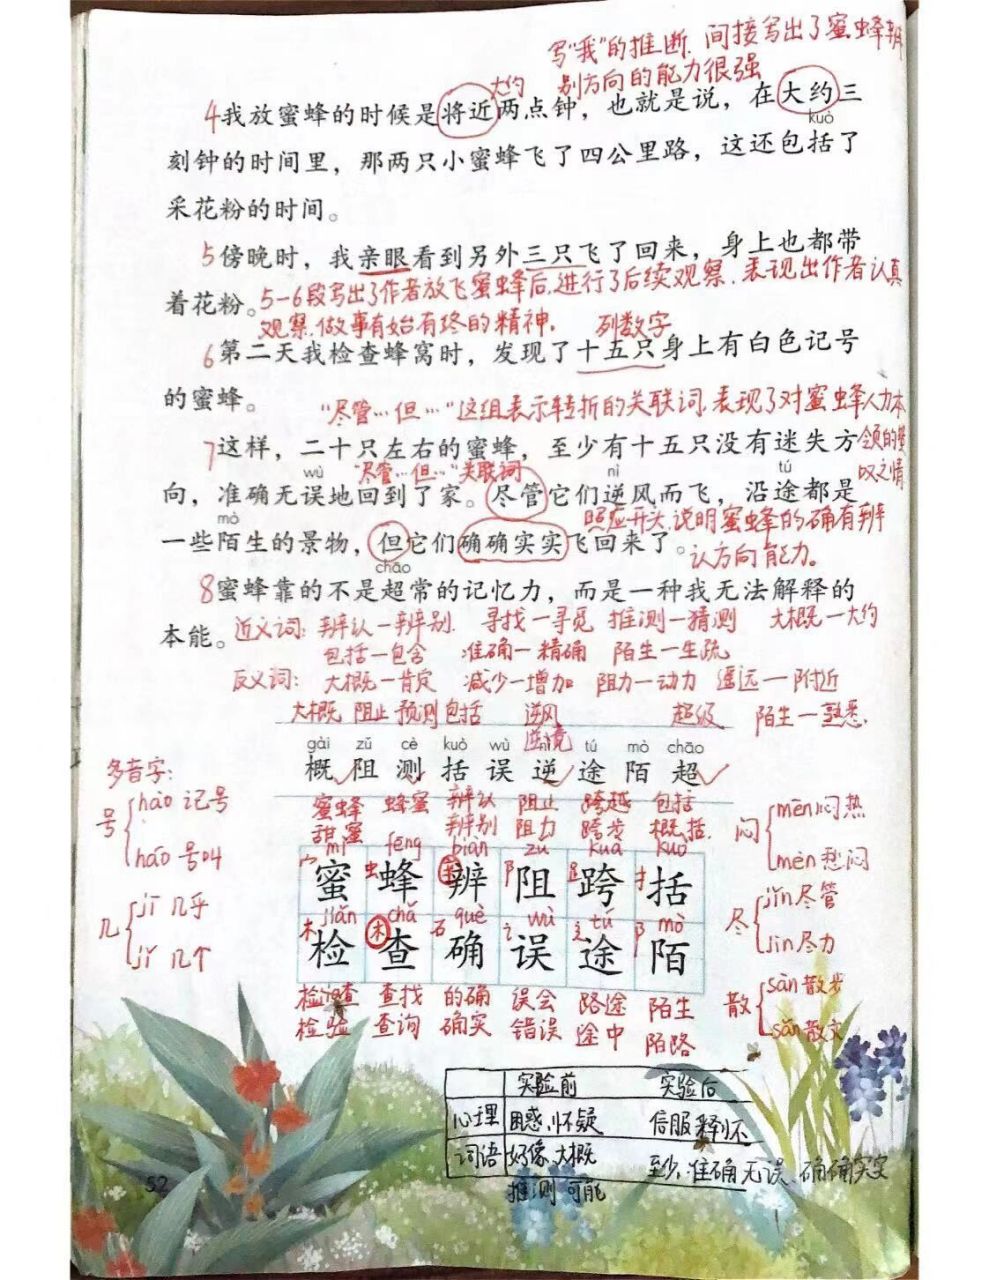 写“我”的推断，间接写出了蜜蜂辨
别方向的能力很强
大约
4我放蜜蜂的时候是将近两点钟，也就是说，在大约三
kuò
刻钟的时间里，那两只小蜜蜂飞了四公里路，这还包括了
采花粉的时间。
5傍晚时，我亲眼看到另外三只飞了回来，身上也都带
着花粉。5-6段写出了作者放飞蜜蜂后，进行了后续观察，表现出作者认真
观察，做事有始有终的精神。 列数字
6第二天我检查蜂窝时，发现了十五只身上有白色记号
的蜜蜂。
“尽管…但…”这组表示转折的关联词，表现了对蜜蜂
本领的
叹之情
7这样，二十只左右的蜜蜂，至少有十五只没有迷失方
wù “尽管…但…”关联词 nì tú
向，准确无误地回到了家。尽管它们逆风而飞，沿途都是
mò 照应开头，说明蜜蜂的确有辨
一些陌生的景物，但它们确确实实飞回来了。认方向能力。
chāo
8蜜蜂靠的不是超常的记忆力，而是一种我无法解释的
本能。近义词：辨认—辨别 寻找—寻觅 推测—猜测 大概—大约
包括—包含 准确—精确 陌生—生疏
反义词： 大概—肯定 减少—增加 阻力—动力 遥远—附近
大概 阻止 预测 包括 逆风 超级 陌生—熟悉
逆境
gài zǔ cè kuò wù nì tú mò chāo
概 阻 测 括 误 逆 途 陌 超
多音字：
号 hào 记号
háo 号叫
几 jī 几乎
jǐ 几个
蜜蜂 蜂蜜 辨认 阻止 跨越 包括
甜蜜 辨别 阻力 跨步 概括
mì fēng biàn zǔ kuà kuò
宀 虫 辛 阝 足 扌
蜜 蜂 辨 阻 跨 括
jiǎn chá què wù tú mò
木 木 石 讠 辶 阝
检 查 确 误 途 陌
检查 查找 的确 误会 路途 陌生
检验 查询 确实 错误 途中 陌路
闷 mēn 闷热
mèn 愁闷
尽 jǐn 尽管
jìn 尽力
散 sàn 散步
sǎn 散文
实验前 实验后
心理 困惑、怀疑 信服 释怀
词语 好像、大概 至少、准确无误、确确实实
推测 可能
52